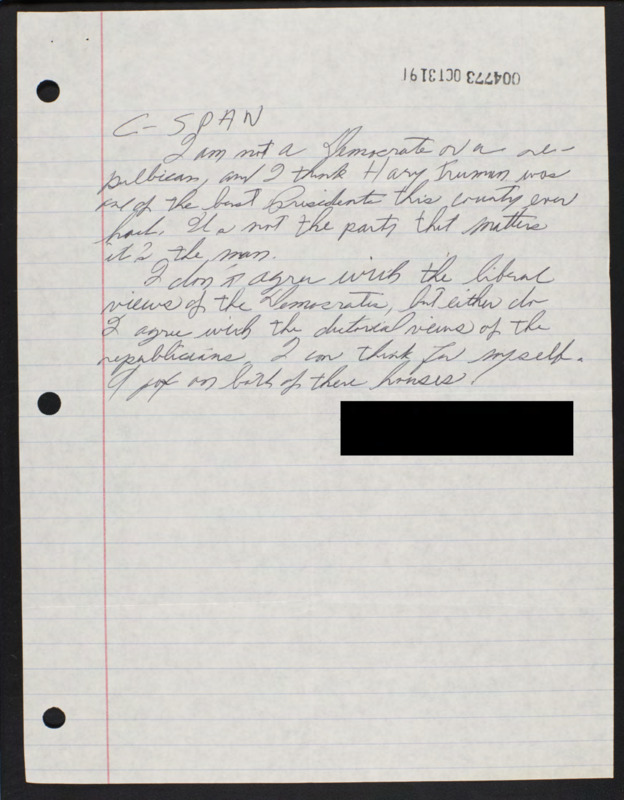 004773 OCT31 91
C-SPAN
I am not a Democrate or a re-
pulbican, and I think Harry Truman was
one of the best Presidents this county ever
had. It's not the party that matters
it's the man.
I don't agree with the liberal
views of the Democrates, but either do
I agree with the dictorical views of the
republicians. I can think for myself.
A pox on both of there houses!